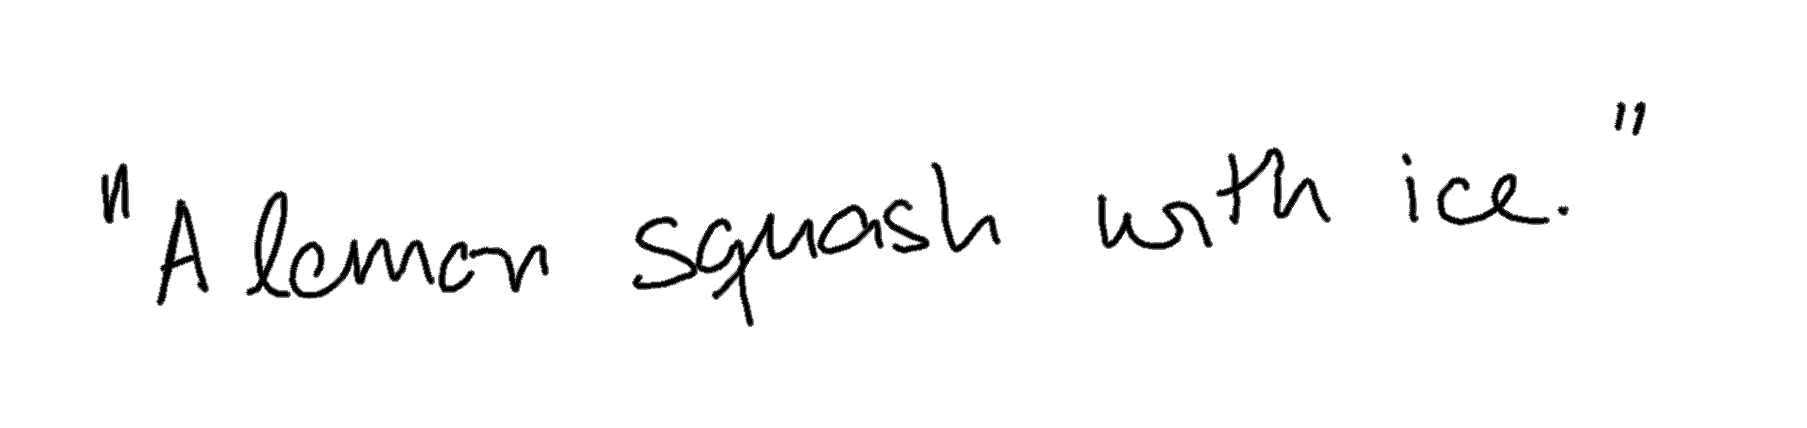 "A lemon squash with ice."